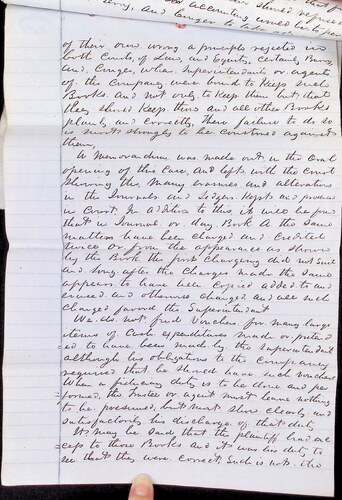 of their own wrong a principle rejected in
both Courts, of Law, and Equity, certainly Benny
and Conger, when Superintendents or agents
of the Company were bound to Keep such
Books. And not only to Keep them but that
they should Keep this and all other Books
plainly and correctly, their failure to do so
is most strongly to be construed against
them,
A Memorandum was made out in the oral
opening of this Case, and left with the Court
showing the many erasures and alterations
in the Journals and Ledgers. Kept and produced
in Court. In addition to this it will be found
that in Journal or day Book A the same
matters have been charged and Credited
twice or from the appearance as shown
by the Book the first charging did not suit
and long after the charges made the same
appears to have been Copied added to and
erased and otherwise changed, and all such
changes favored the Superintendent
We do not find Vouchers for many large
items of Cash expenditures made or pretend
ed to have been made by the Superintendent
although his obligations to the Company
required that he should have such vouchers
When a fiduciary duty is to be done and per
formed, the trustee or agent must leave nothing
to be presumed, but must show clearly and
satisfactorily his discharge of that duty
It may be said that the plaintiff had ac
cess to those Books and it was his duty to
see that they were correct, such is not the